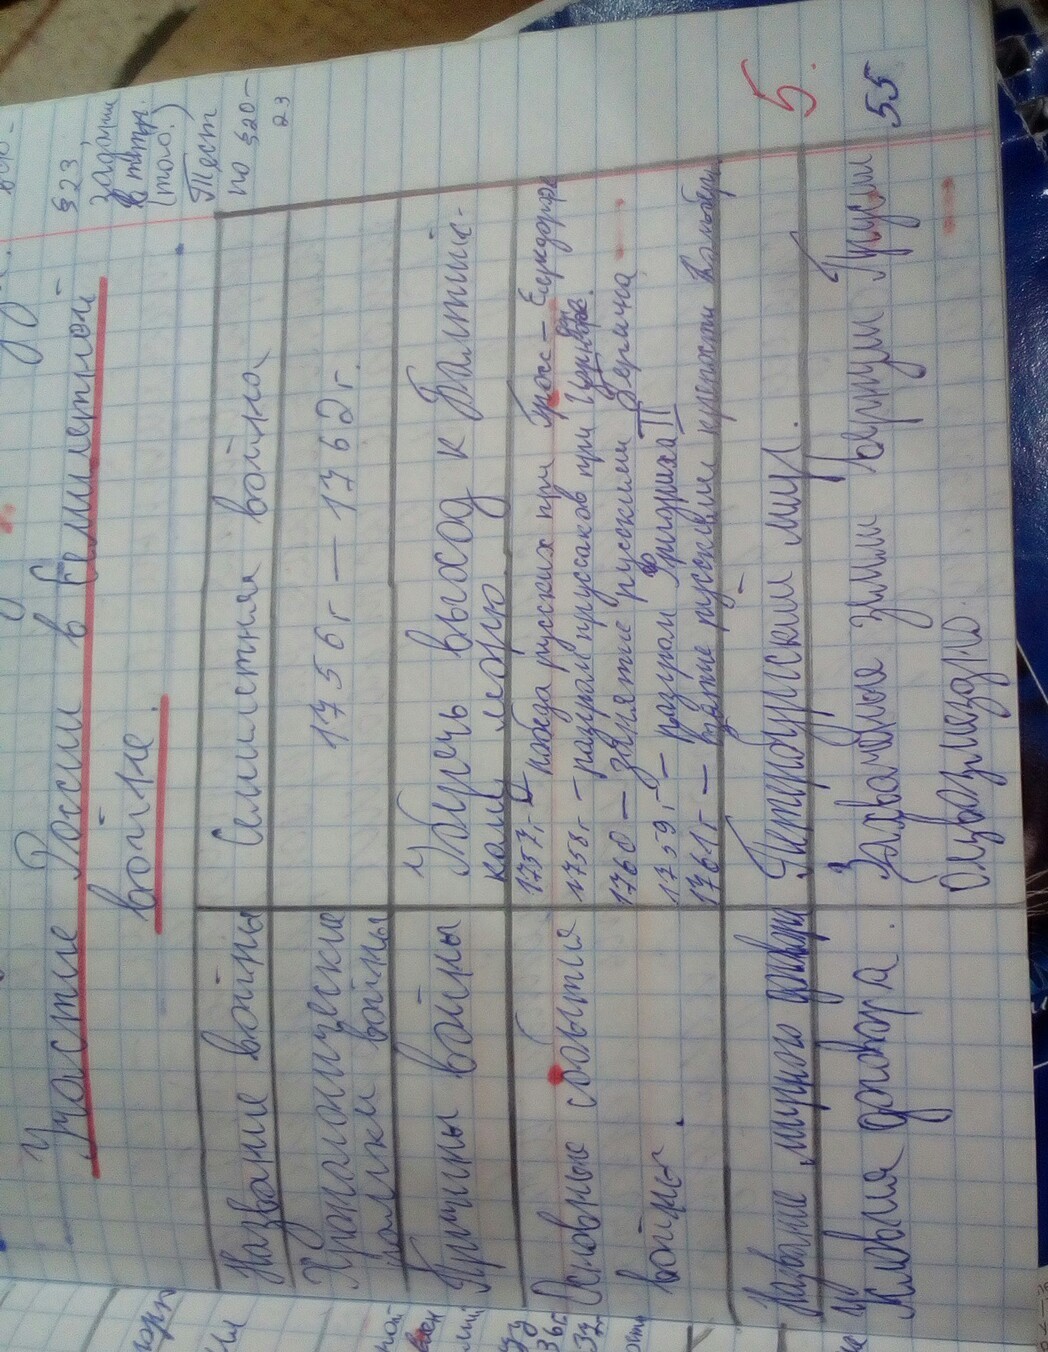 §23,
задания
в тетр.
(тол.)
Тест
по §20-
23
Участие России в Семилетней
войне.
Название войны
Семилетняя война
Хронологические
рамки войны
1756г – 1762г.
Причины войны
Уберечь выход к Балтийс-
кому морю.
Основные события
войны.
1757г. – победа русских при Гросс – Егерсдорфе
1758г. – разгром пруссаков при
1760 – занятие русскими Берлина
1759г – разгром Фридриха II
1761г. – взятие русскими крепости Кольберг
Название мирного договора
Петербургский мир.
и
условия договора.
Захваченые земли вернули Пруссии
безвозмездно.
5.
55